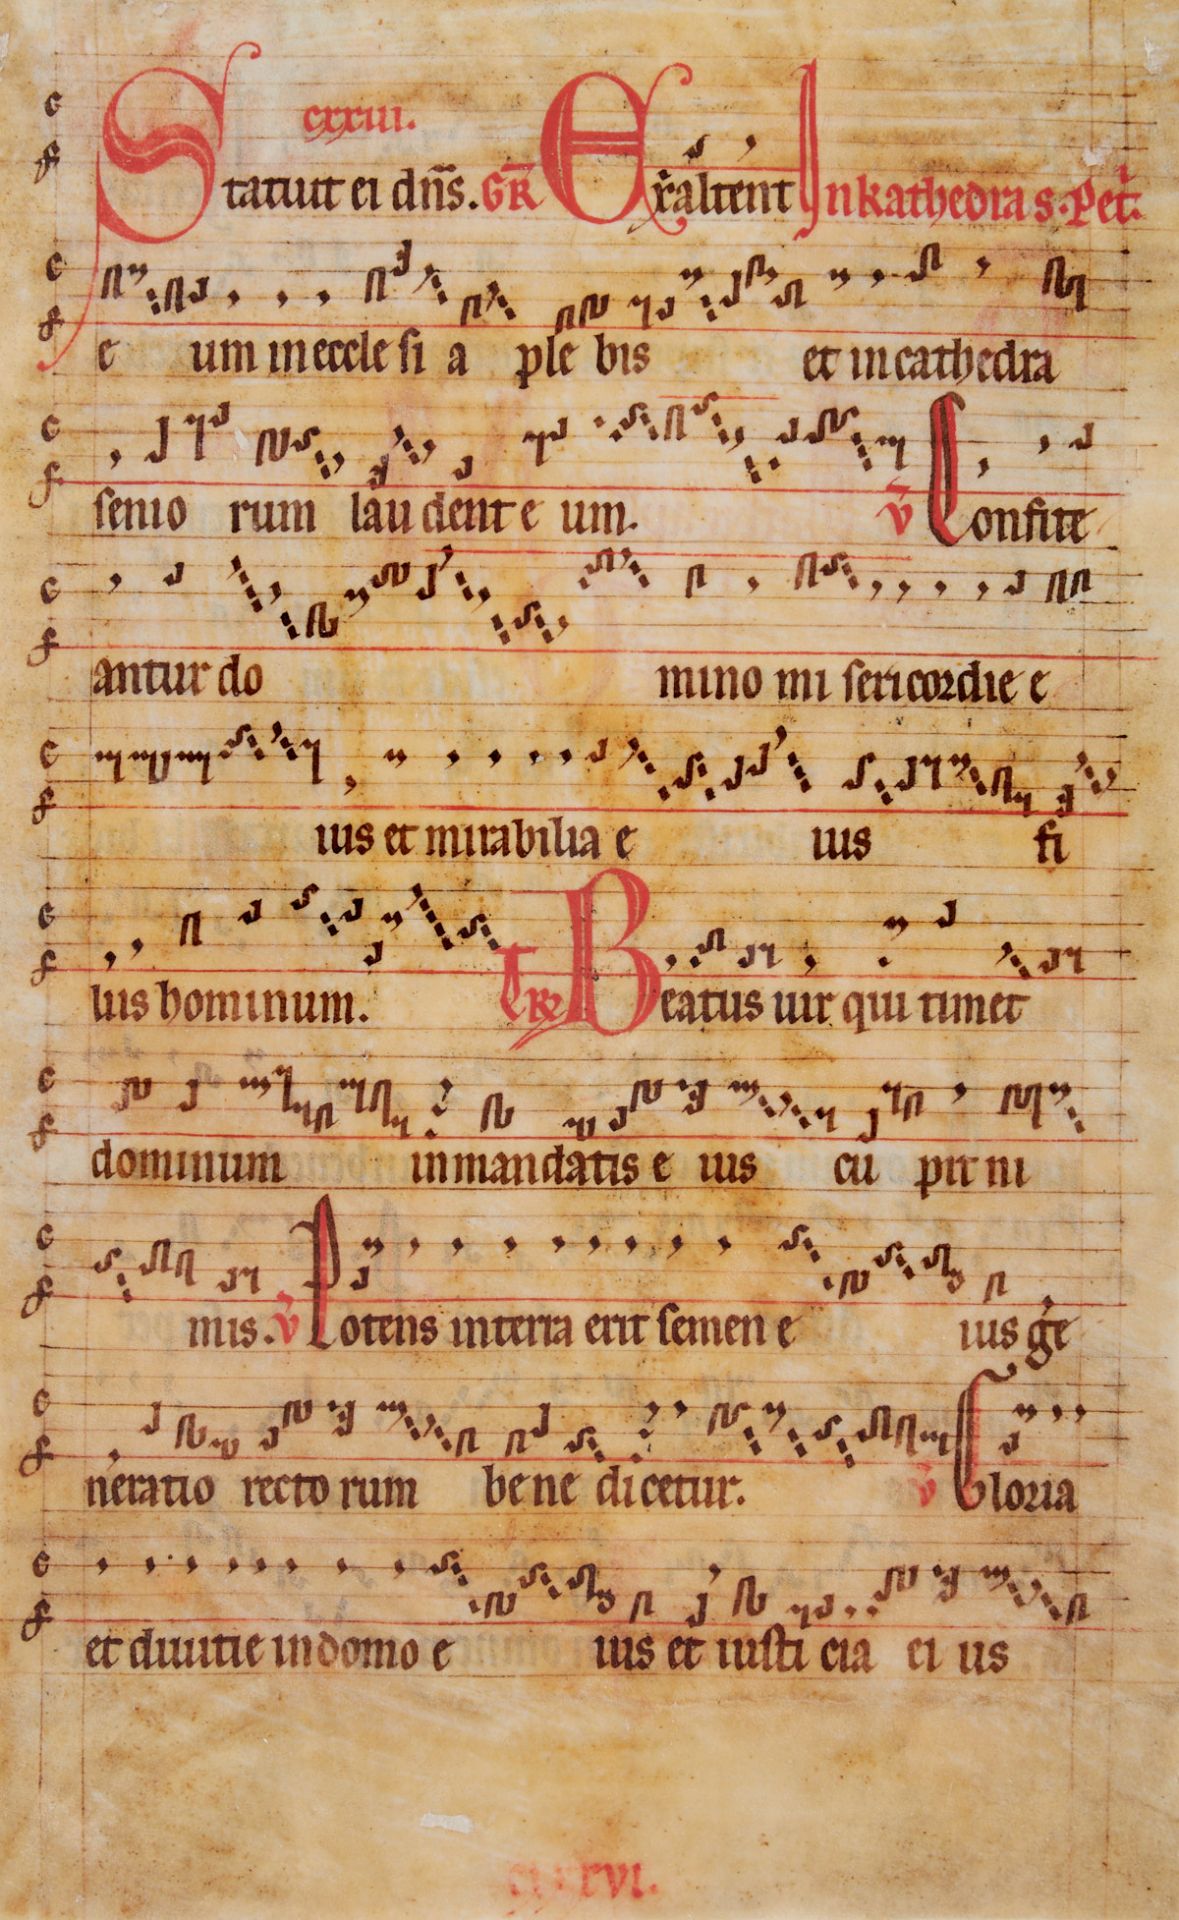 cxxiii.
Statuit ei dn̄s. GR̄ Exaltent In kathedra s. Pet̄.
e um in eccle si a ple bis et in cathedra
senio rum lau dent e um. v̄ Confite
antur do mino mi sericordie e
ius et mirabilia e ius fi
liis hominum. TR Beatus uir qui timet
dominum in mandatis e ius cu pit ni
mis. v̄ Potens in terra erit semen e ius ge
neratio recto rum be ne dicetur. v̄ Gloria
et diuitie in domo e ius et iusti cia ei us